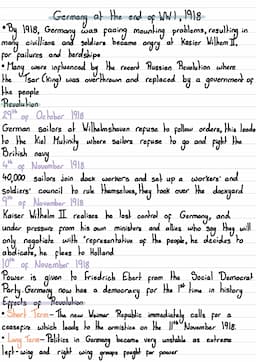 Germany at the end of WW1, 1918
• By 1918, Germany was facing mounting problems, resulting in
many civillians and soldiers became angry at Kasier Wilhem II,
for failures and hardships
• Many were influenced by the recent Russian Revolution where
the Tsar (King) was overthrown and replaced by a government of
the people
Revolution
29th of October 1918
German sailors at Wilhelmshaven refuse to follow orders, this leads
to the Kiel Mutinity where sailors refuse to go and fight the
British navy
4th of November 1918
40,000 sailors join dock workers and set up a workers' and
soldiers' council to rule themselves, they took over the dockyard
9th of November 1918
Kaiser Wilhelm II realises he lost control of Germany, and
under pressure from his own ministers and allies who say they will
only negotiate with representative of the people, he decides to
abdicate, he flees to Holland
10th of November 1918
Power is given to Friedrich Ebert from the Social Democrat
Party. Germany now has a democracy for the 1st time in history
Effects of Revolution
• Short Term - The new Weimar Republic immediately calls for a
ceasefire which leads to the armistice on the 11th November 1918.
• Long Term - Politics in Germany became very unstable as extreme
left-wing and right wing groups fought for power